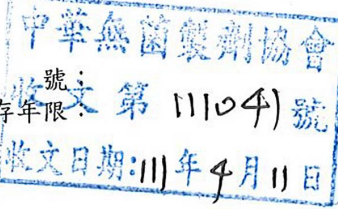 中華無菌製劑協會
號：
收文第 111041 號
存年限：
收文日期:111年4月11日